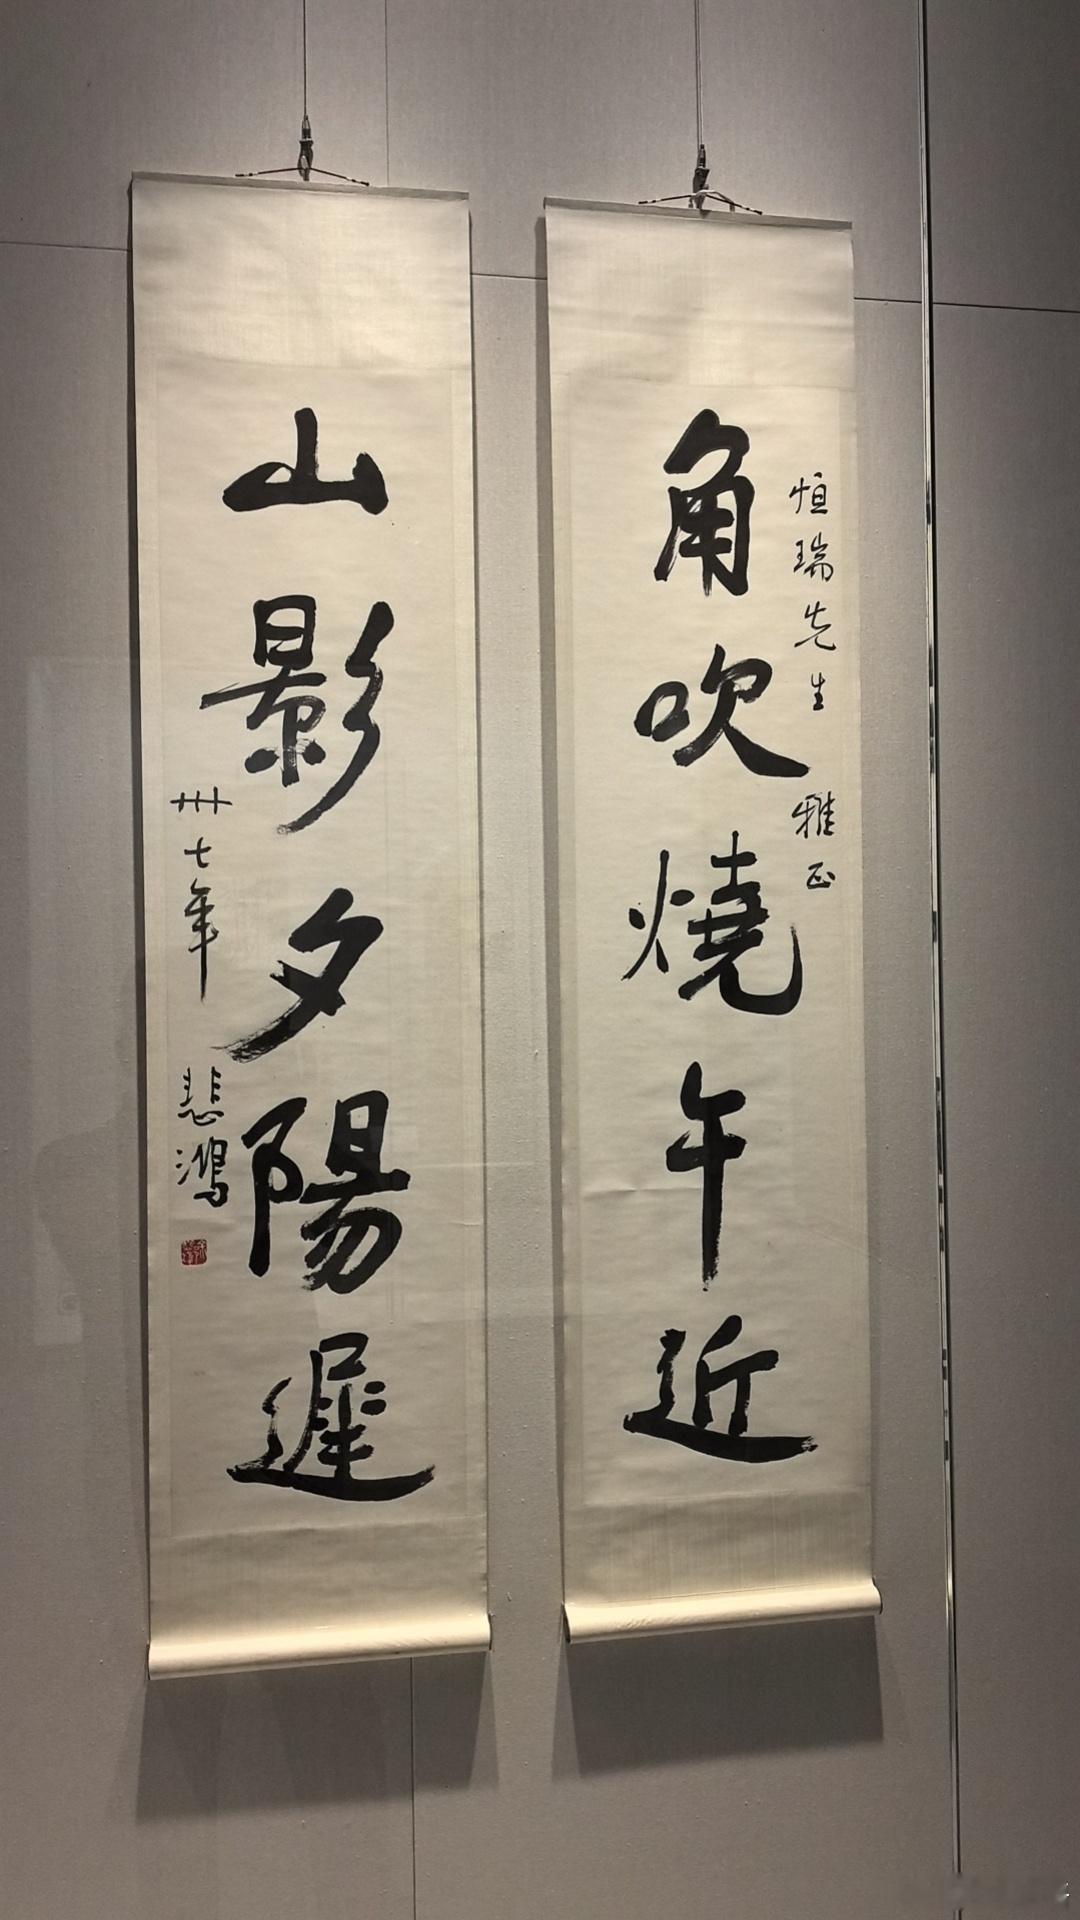 恒瑞先生 雅正
角吹燒午近
山影夕陽遲
卅七年 悲鴻